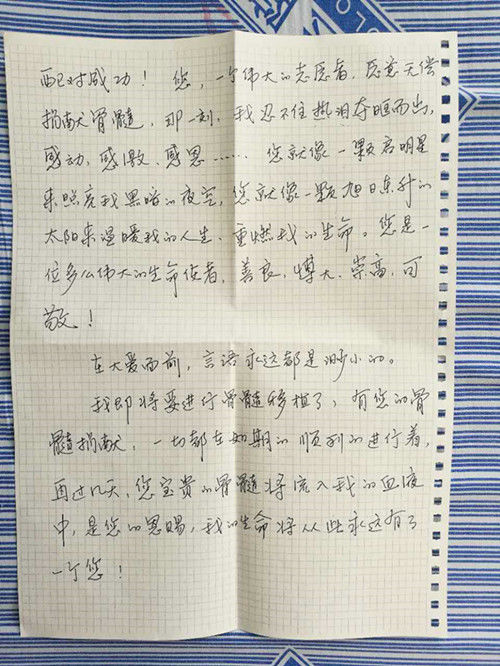 配对成功！您，一个伟大的志愿者，愿意无偿
捐献骨髓，那一刻，我忍不住热泪夺眶而出，
感动，感激，感恩……您就像一颗启明星
来照亮我黑暗的夜空，您就像一颗旭日东升的
太阳来温暖我的人生、重燃我的生命。您是一
位多么伟大的生命使者，善良，博大，崇高，可
敬！
在大爱面前，言语永远都是渺小的。
我即将要进行骨髓移植了，有您的骨
髓捐献，一切都在如期的顺利的进行着，
再过几天，您宝贵的骨髓将流入我的血液
中，是您的恩赐，我的生命将从此永远有了
一个您！